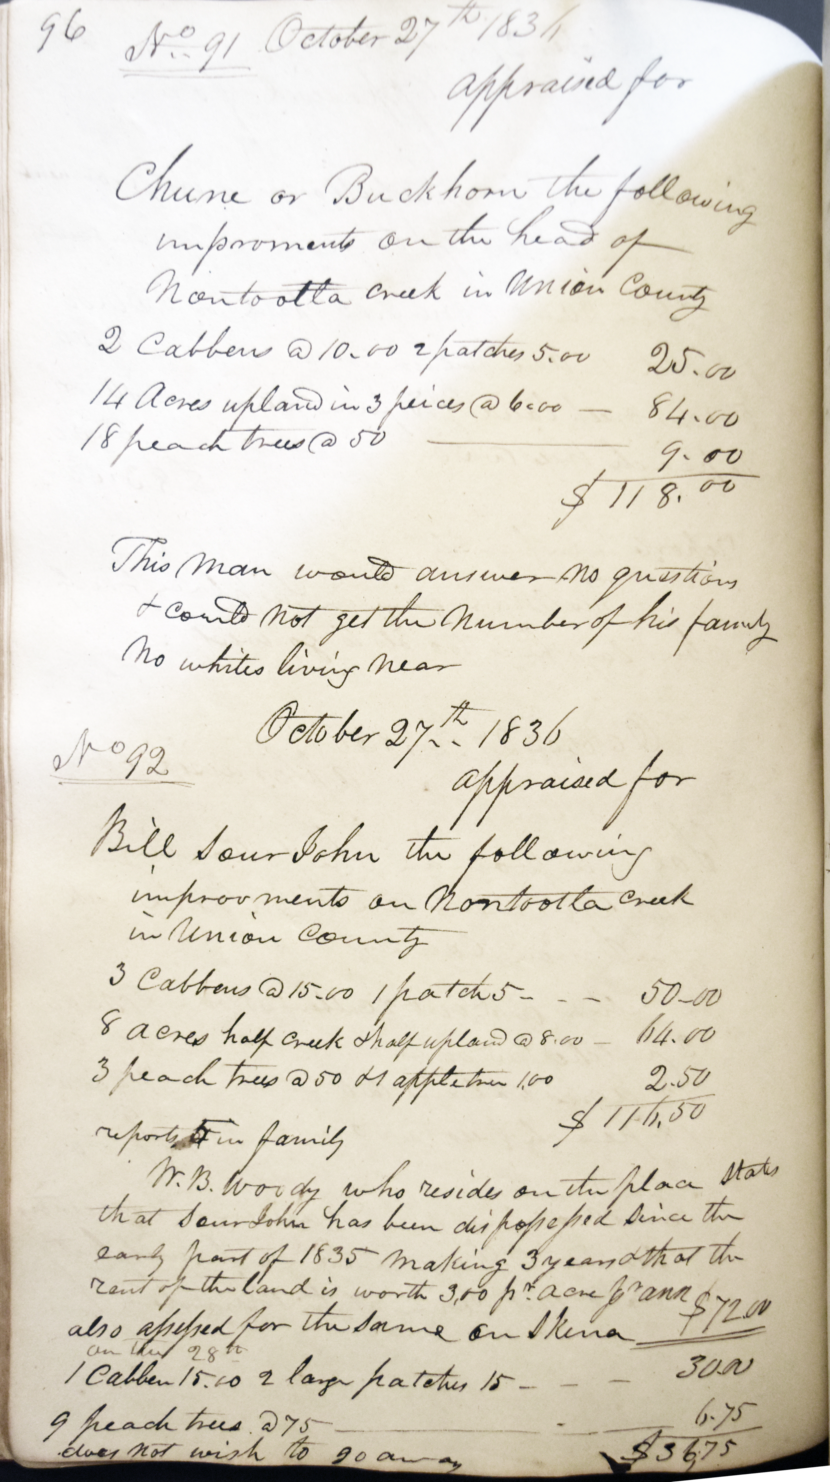 96
No 91 October 27th 1836
appraised for
Chune or Buckhorn the following
improments on the head of
Nontootla creek in Union County
2 Cabbens @ 10.00 2 patches 5.00 25.00
14 Acres upland in 3 peices @ 6.00 — 84.00
18 peach trees @ 50 — 9.00
$118.00
This man would answer no questions
& could not get the number of his family
No whites living near
October 27th 1836
No 92
appraised for
Bill Sour John the following
improvments on Nontootla creek
in Union County
3 Cabbens @ 15.00 1 patch 5 - - - 50.00
8 acres half creek & half upland @ 8.00 — 64.00
3 peach trees @ 50 & 1 apple tree 1.00 2.50
$116.50
reports in family
W. B. Woody who resides on the place States
that Sour John has been dispossessed since the
early part of 1835 making 3 years & that the
rent of the land is worth 3,00 pr. acre pr ann $72.00
also assessed for the same on Skena
on the 28th
1 Cabben 15.00 2 large patches 15 - - - 30.00
9 peach trees @ 75 — 6.75
does not wish to go away $36.75